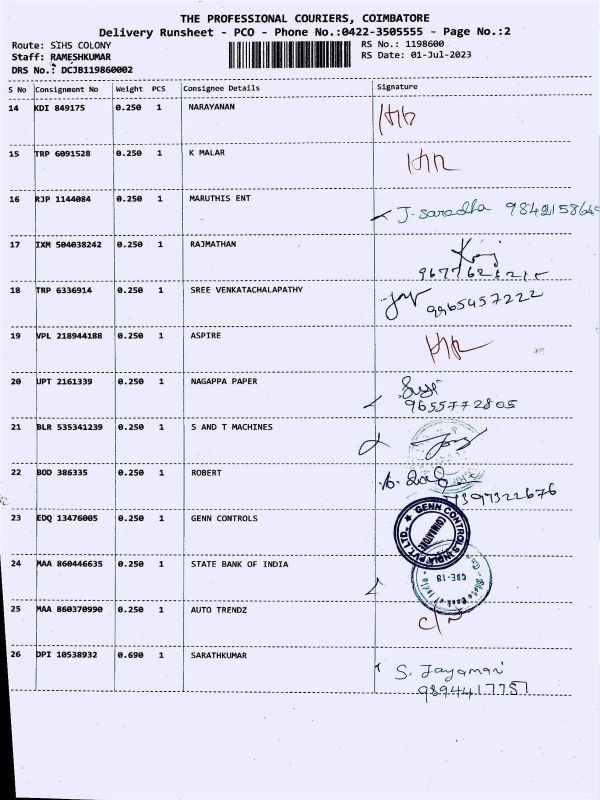 THE PROFESSIONAL COURIERS, COIMBATORE
Delivery Runsheet - PCO - Phone No.:0422-3505555 - Page No.:2
Route: SIHS COLONY RS No.: 1198600
Staff: RAMESHKUMAR RS Date: 01-Jul-2023
DRS No.: DCJB119860002
S No Consignment No Weight PCS Consignee Details Signature
14 KDI 849175 0.250 1 NARAYANAN
15 TRP 6091528 0.250 1 K MALAR
16 RJP 1144084 0.250 1 MARUTHIS ENT
J. Saradha 9842158649
17 IXM 504038242 0.250 1 RAJMATHAN
18 TRP 6336914 0.250 1 SREE VENKATACHALAPATHY
9965457222
19 VPL 218944188 0.250 1 ASPIRE
20 UPT 2161339 0.250 1 NAGAPPA PAPER
9655772805
21 BLR 535341239 0.250 1 S AND T MACHINES
22 BOD 386335 0.250 1 ROBERT
7397322676
23 EDQ 13476005 0.250 1 GENN CONTROLS
GENN CONTROLS INDIA PVT. LTD.
COIMBATORE
24 MAA 860446635 0.250 1 STATE BANK OF INDIA
State Bank of India
CBE-18
25 MAA 860370990 0.250 1 AUTO TRENDZ
26 DPI 10538932 0.690 1 SARATHKUMAR
S. Jayamari
9894417757